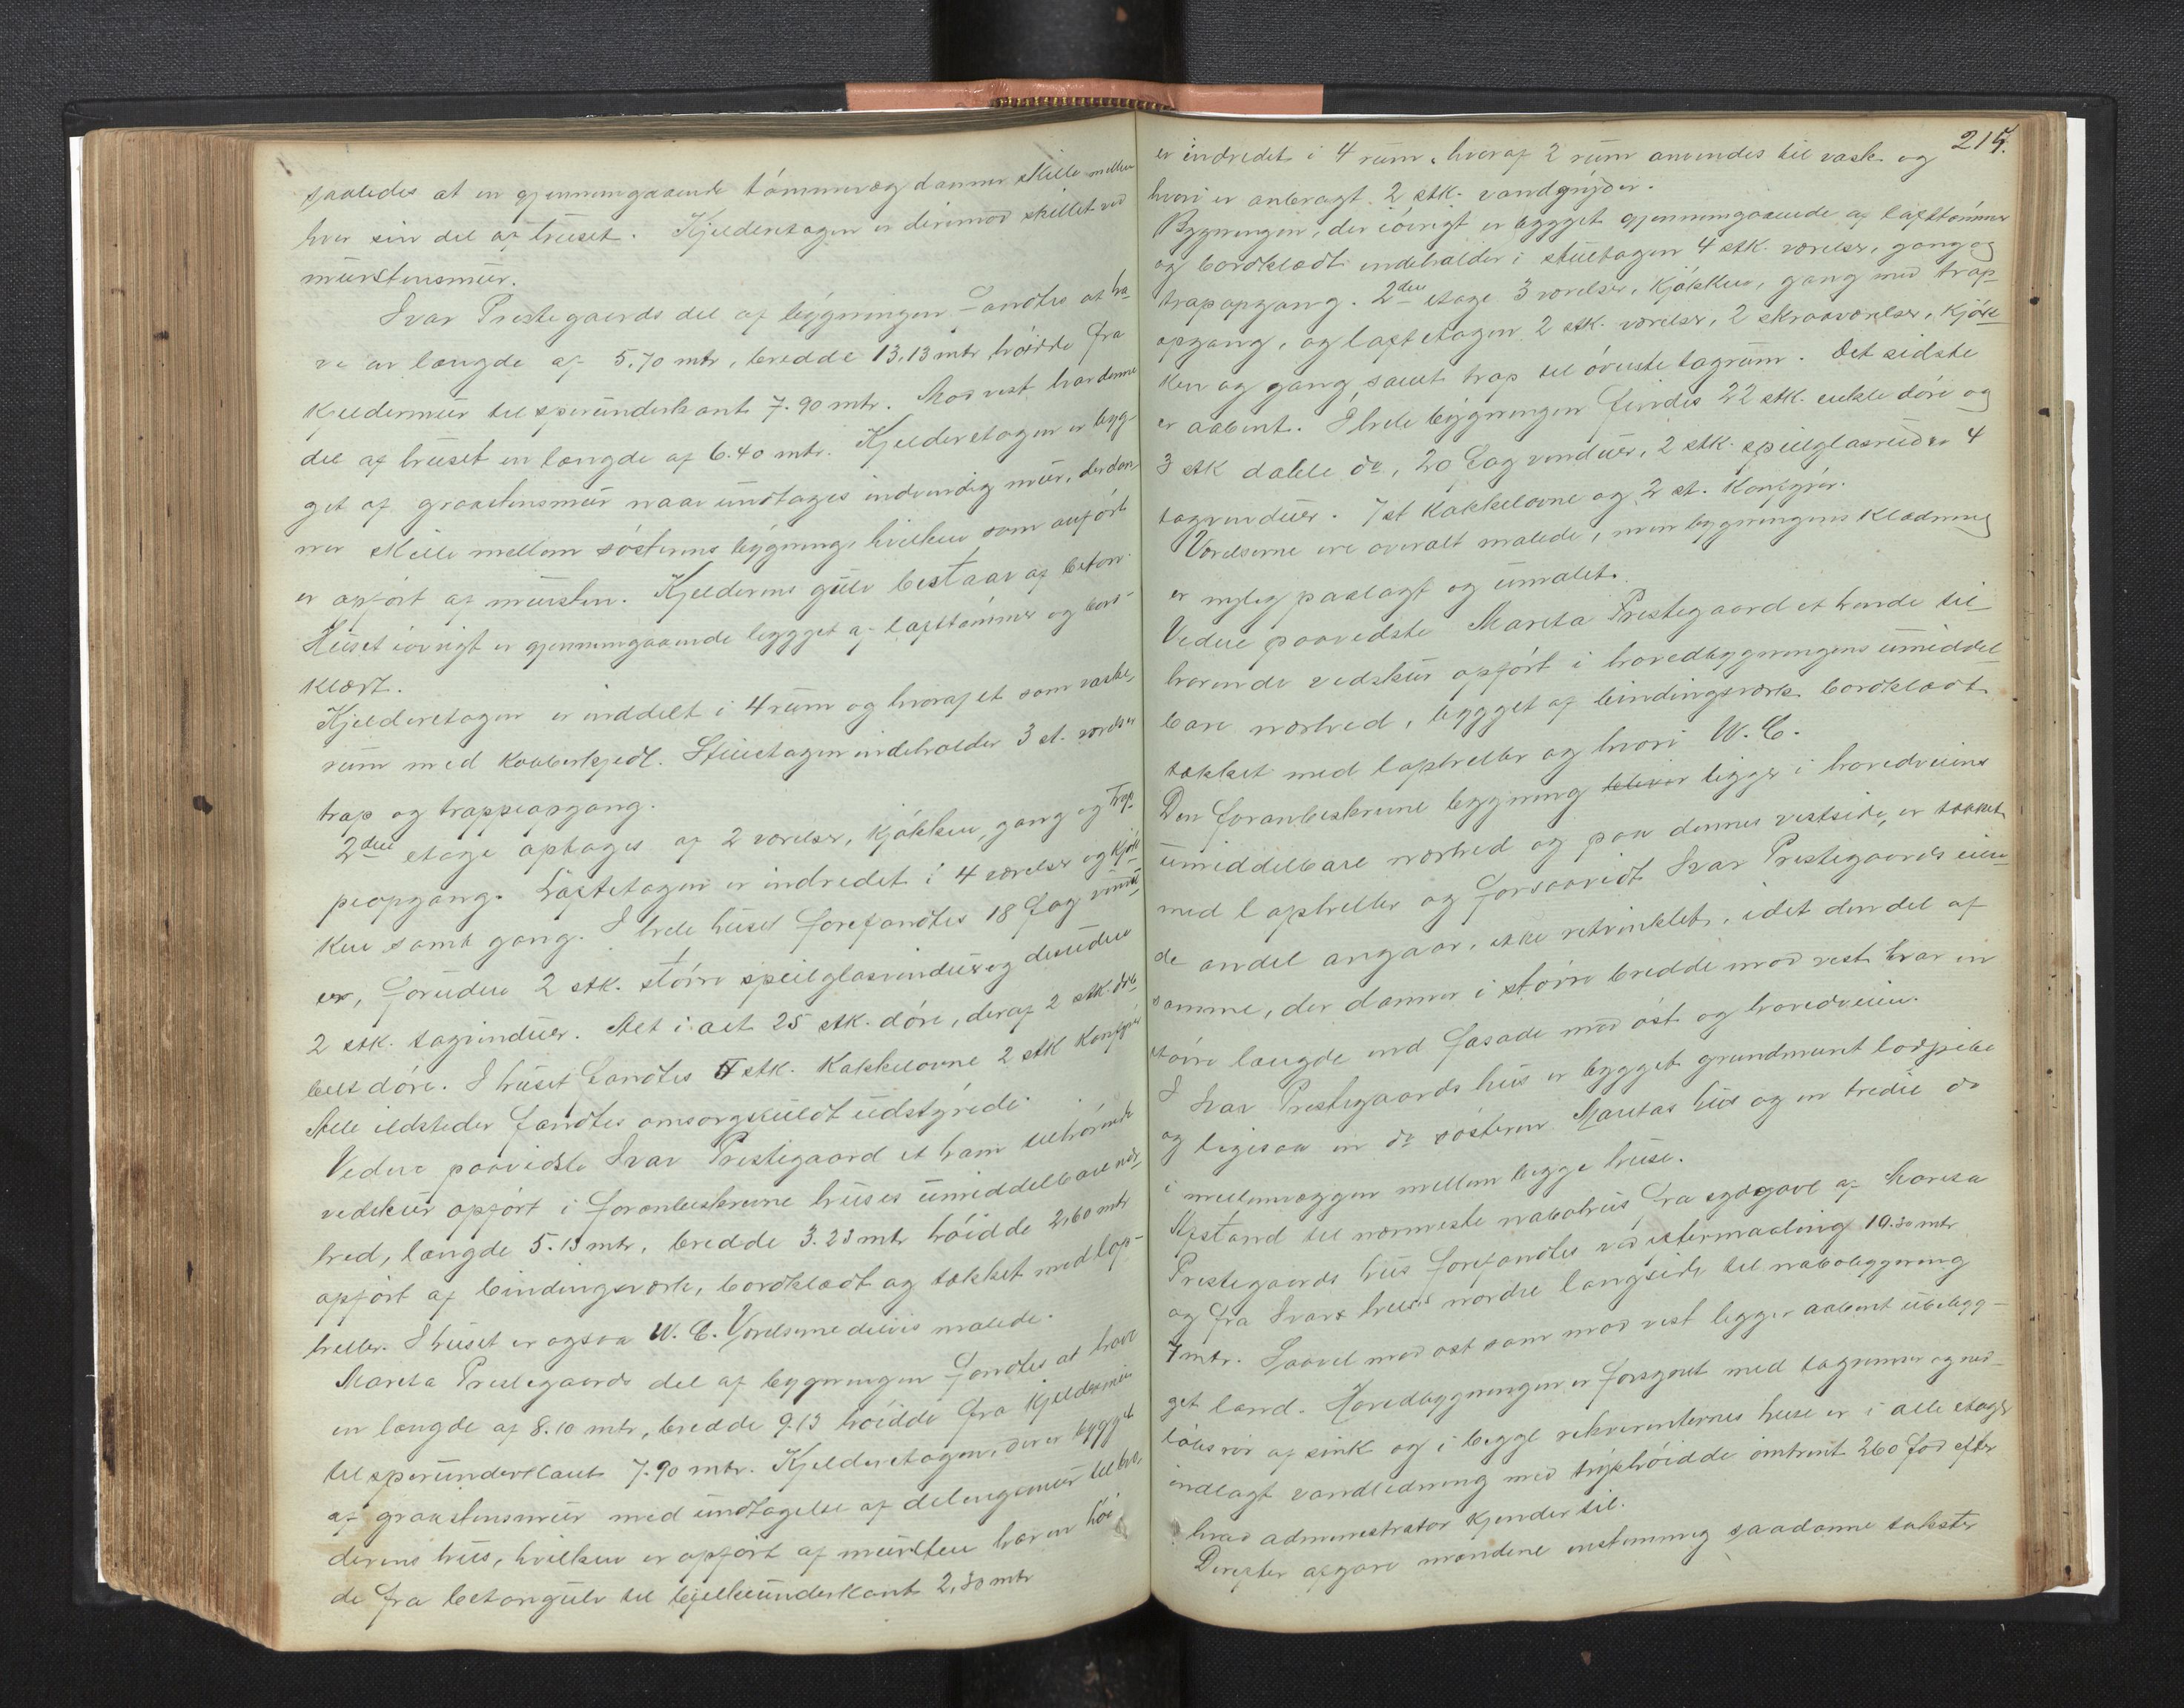 saaledes at en gjennemgaaende tømmervæg danner skille mellem
hver sin del af huset. Kjelderetagen er derimod skillet ved
murstensmur.
Ivar Prestegaards del af bygningen fandtes at ha-
ve en længde af 5.70 mtr, bredde 13,13 mtr høidde fra
kjeldermur til sperunderkant 7.90 mtr. Mod vest har denne
del af huset en længde af 6.40 mtr. Kjelderetagen er byg-
get af graastensmur naar undtages indvendig mur, der dan-
ner skille mellem søsterens bygning, hvilken som anført
er opført af mursten. Kjelderens gulv bestaar af beton.
Huset iøvrigt er gjennemgaaende bygget af lafttømmer og bord-
klædt.
Kjelderetagen er inddelt i 4 rum og hvoraf et som vaske-
rum med kobberkjedl. Stuetagen indeholder 3 st. værelser
trap og trappeopgang.
2den etage optages af 2 værelser, kjøkken, gang og trap-
peopgang. Loftetagen er indredet i 4 værelser og kjøk-
ken samt gang. I hele huset forefandtes 18 fag vindu-
er, foruden 2 stk. større speilglasvinduer og desuden
2 stk. tagvinduer. Alt i alt 25 stk. døre, deraf 2 stk. dob-
belt døre. I huset fandtes stk. Kakkelovne 2 stk Komfyrer
Alle ildsteder fandtes omsorgsfuldt udstyrede.
Videre paaviste Ivar Prestegaard et ham tilhørende
vedskur opført i foranbeskrevne huses umiddelbare nær-
hed, længde 5.15 mtr, bredde 3.23 mtr høidde 2,60 mtr
opført af bindingsværk, bordklædt og tækket med lap-
heller. I huset er ogsaa W. C. Værelserne delvis malede.
Mareta Prestegaards del af bygningen fandtes at have
en længde af 8.10 mtr, bredde 9.13 høidde fra kjeldermur
til sperunderkant 7.90 mtr. Kjelderetagen, der er bygget
af graastensmur med undtagelse af delingsmur til bro-
derens hus, hvilken er opført af mursten har en høi-
de fra betongulv til bjelkeunderkant 2,30 mtr
215.
er indredet i 4 rum, hvoraf 2 rum anvendes til vask og
hvori er anbragt 2 stk. vandgryder.
Bygningen, der iøvrigt er bygget gjennemgaaende af lafttømmer
og bordklædt indeholder i stuetagen 4 stk. værelser, gang og
trapopgang. 2den etage 3 værelser, kjøkken, gang med trap-
opgang, og loftetagen 2 stk. værelser, 2 skraaværelser, kjøk-
ken og gang samt trap til øverste tagrum. Det sidste
er aabent. I hele bygningen findes 22 stk. enkle døre og
3 stk doble do, 20 fag vinduer, 2 stk. speilglasruder 4
tagvinduer. 7 st Kakkelovne og 2 st. Komfyrer.
Værelserne ere overalt malede, men bygningens klædning
er nylig paalagt og umalet.
Videre paaviste Mareta Prestegaard et hende til-
hørende vedskur opført i hovedbygningens umiddel-
bare nærhed, bygget af bindingsværk bordklædt
tækket med lapheller og hvori W. C.
Den foranbeskrevne bygning ligger i hovedveiens
umiddelbare nærhed og paa dennes vestside, er tækket
med lapheller og forsaavidt Ivar Prestegaards eien-
de andel angaar, ikke retvinklet, idet den del af
samme, der danner i større bredde mod vest har en
større længde end fasade mod øst og hovedveien.
I Ivar Prestegaards hus er bygget grundmuret lodpibe
og ligesaa en do søsteren Maretas hus og en tredie do
i mellemvæggen mellem begge huse.
Afstand til nærmeste nabohus fra sydgavl af Mareta
Prestegaards hus forefandtes ved eftermaaling 10.30 mtr
og fra Ivars huses nordre langside til nabobygning
7 mtr. Saavel mod øst som mod vest ligger aabent ubebyg-
get land. Hovedbygningen er forsynet med tagrenner og ned-
løbsrør af sink og i begge rekvirenternes huse er i alle etager
indlagt vandledning med trykhøidde omtrent 260 fod efter
hvad administrator kjender til.
Derefter afgave mændene enstemmig saadanne takster